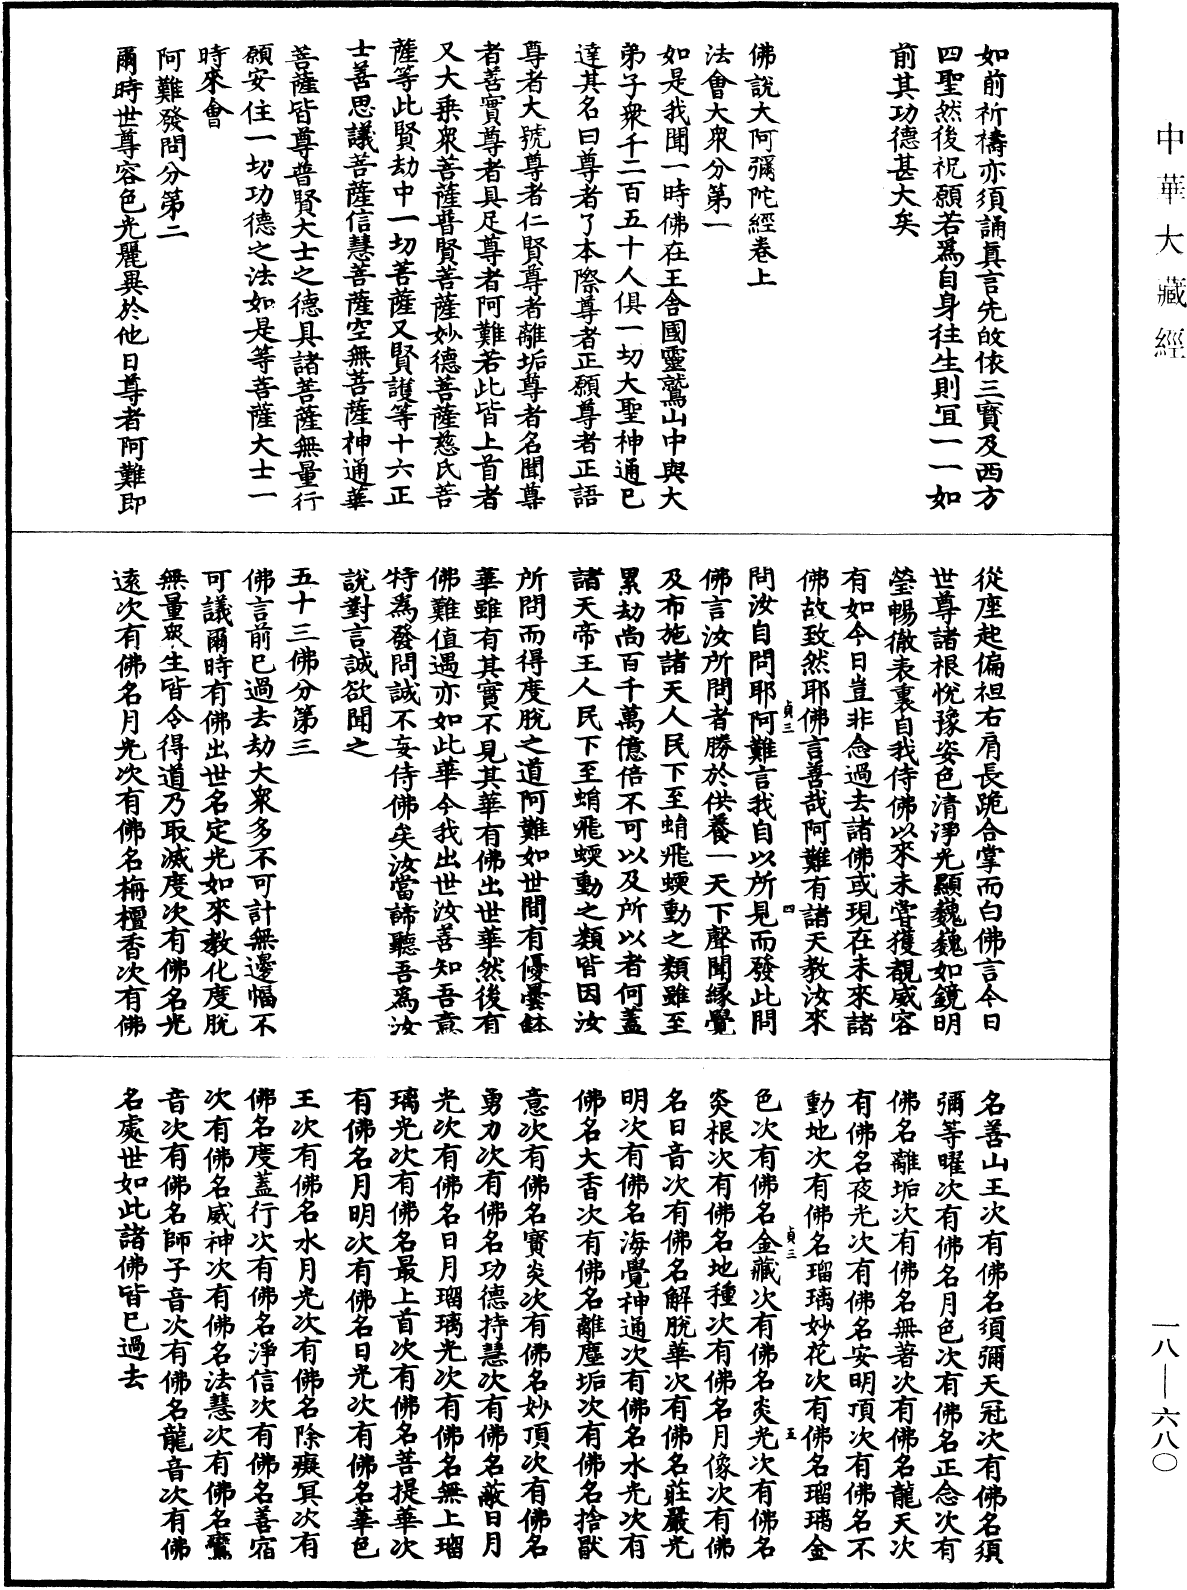 中華大藏經
如前祈禱亦須誦真言先啟依三寳及西方
四聖然後祝願若爲自身往生則冝一一如
前其功德甚大矣
佛說大阿彌陀經卷上
法會大衆分第一
如是我聞一時佛在王舍國靈鷲山中與大
弟子衆千二百五十人俱一切大聖神通已
達其名曰尊者了本際尊者正願尊者正語
尊者大號尊者仁賢尊者離垢尊者名聞尊
者善實尊者具足尊者阿難若此皆上首者
又大乘衆菩薩普賢菩薩妙德菩薩慈氏菩
薩等此賢劫中一切菩薩又賢護等十六正
士善思議菩薩信慧菩薩空無菩薩神通華
菩薩皆尊普賢大士之德具諸菩薩無量行
願安住一切功德之法如是等菩薩大士一
時來會
阿難發問分第二
爾時世尊容色光麗異於他日尊者阿難即
從座起偏袒右肩長跪合掌而白佛言今日
世尊諸根悅豫姿色清淨光顯巍巍如鏡明
瑩暢徹表裏自我侍佛以來未嘗獲覩威容
有如今日豈非念過去諸佛或現在未來諸
佛故致然耶佛言善哉阿難有諸天教汝來
貞三
四
問汝自問耶阿難言我自以所見而發此問
佛言汝所問者勝於供養一天下聲聞緣覺
及布施諸天人民下至蜎飛蝡動之類雖至
累劫尚百千萬億倍不可以及所以者何蓋
諸天帝王人民下至蜎飛蝡動之類皆因汝
所問而得度脫之道阿難如世間有優曇鉢
華雖有其實不見其華有佛出世華然後有
佛難值遇亦如此華今我出世汝善知吾意
特爲發問誠不妄侍佛矣汝當諦聽吾爲汝
說對言誠欲聞之
五十三佛分第三
佛言前已過去劫大衆多不可計無邊幅不
可議爾時有佛出世名定光如來教化度脫
無量衆生皆令得道乃取滅度次有佛名光
遠次有佛名月光次有佛名栴檀香次有佛
名善山王次有佛名須彌天冠次有佛名須
彌等曜次有佛名月色次有佛名正念次有
佛名離垢次有佛名無著次有佛名龍天次
有佛名夜光次有佛名安明頂次有佛名不
動地次有佛名瑠璃妙花次有佛名瑠璃金
貞三
五
色次有佛名金藏次有佛名炎光次有佛名
炎根次有佛名地種次有佛名月像次有佛
名日音次有佛名解脫華次有佛名莊嚴光
明次有佛名海覺神通次有佛名水光次有
佛名大香次有佛名離塵垢次有佛名捨猒
意次有佛名寳炎次有佛名妙頂次有佛名
勇力次有佛名功德持慧次有佛名蔽日月
光次有佛名日月瑠璃光次有佛名無上瑠
璃光次有佛名最上首次有佛名菩提華次
有佛名月明次有佛名日光次有佛名華色
王次有佛名水月光次有佛名除癡冥次有
佛名度蓋行次有佛名淨信次有佛名善宿
次有佛名威神次有佛名法慧次有佛名鸞
音次有佛名師子音次有佛名龍音次有佛
名處世如此諸佛皆已過去
一八—六八〇